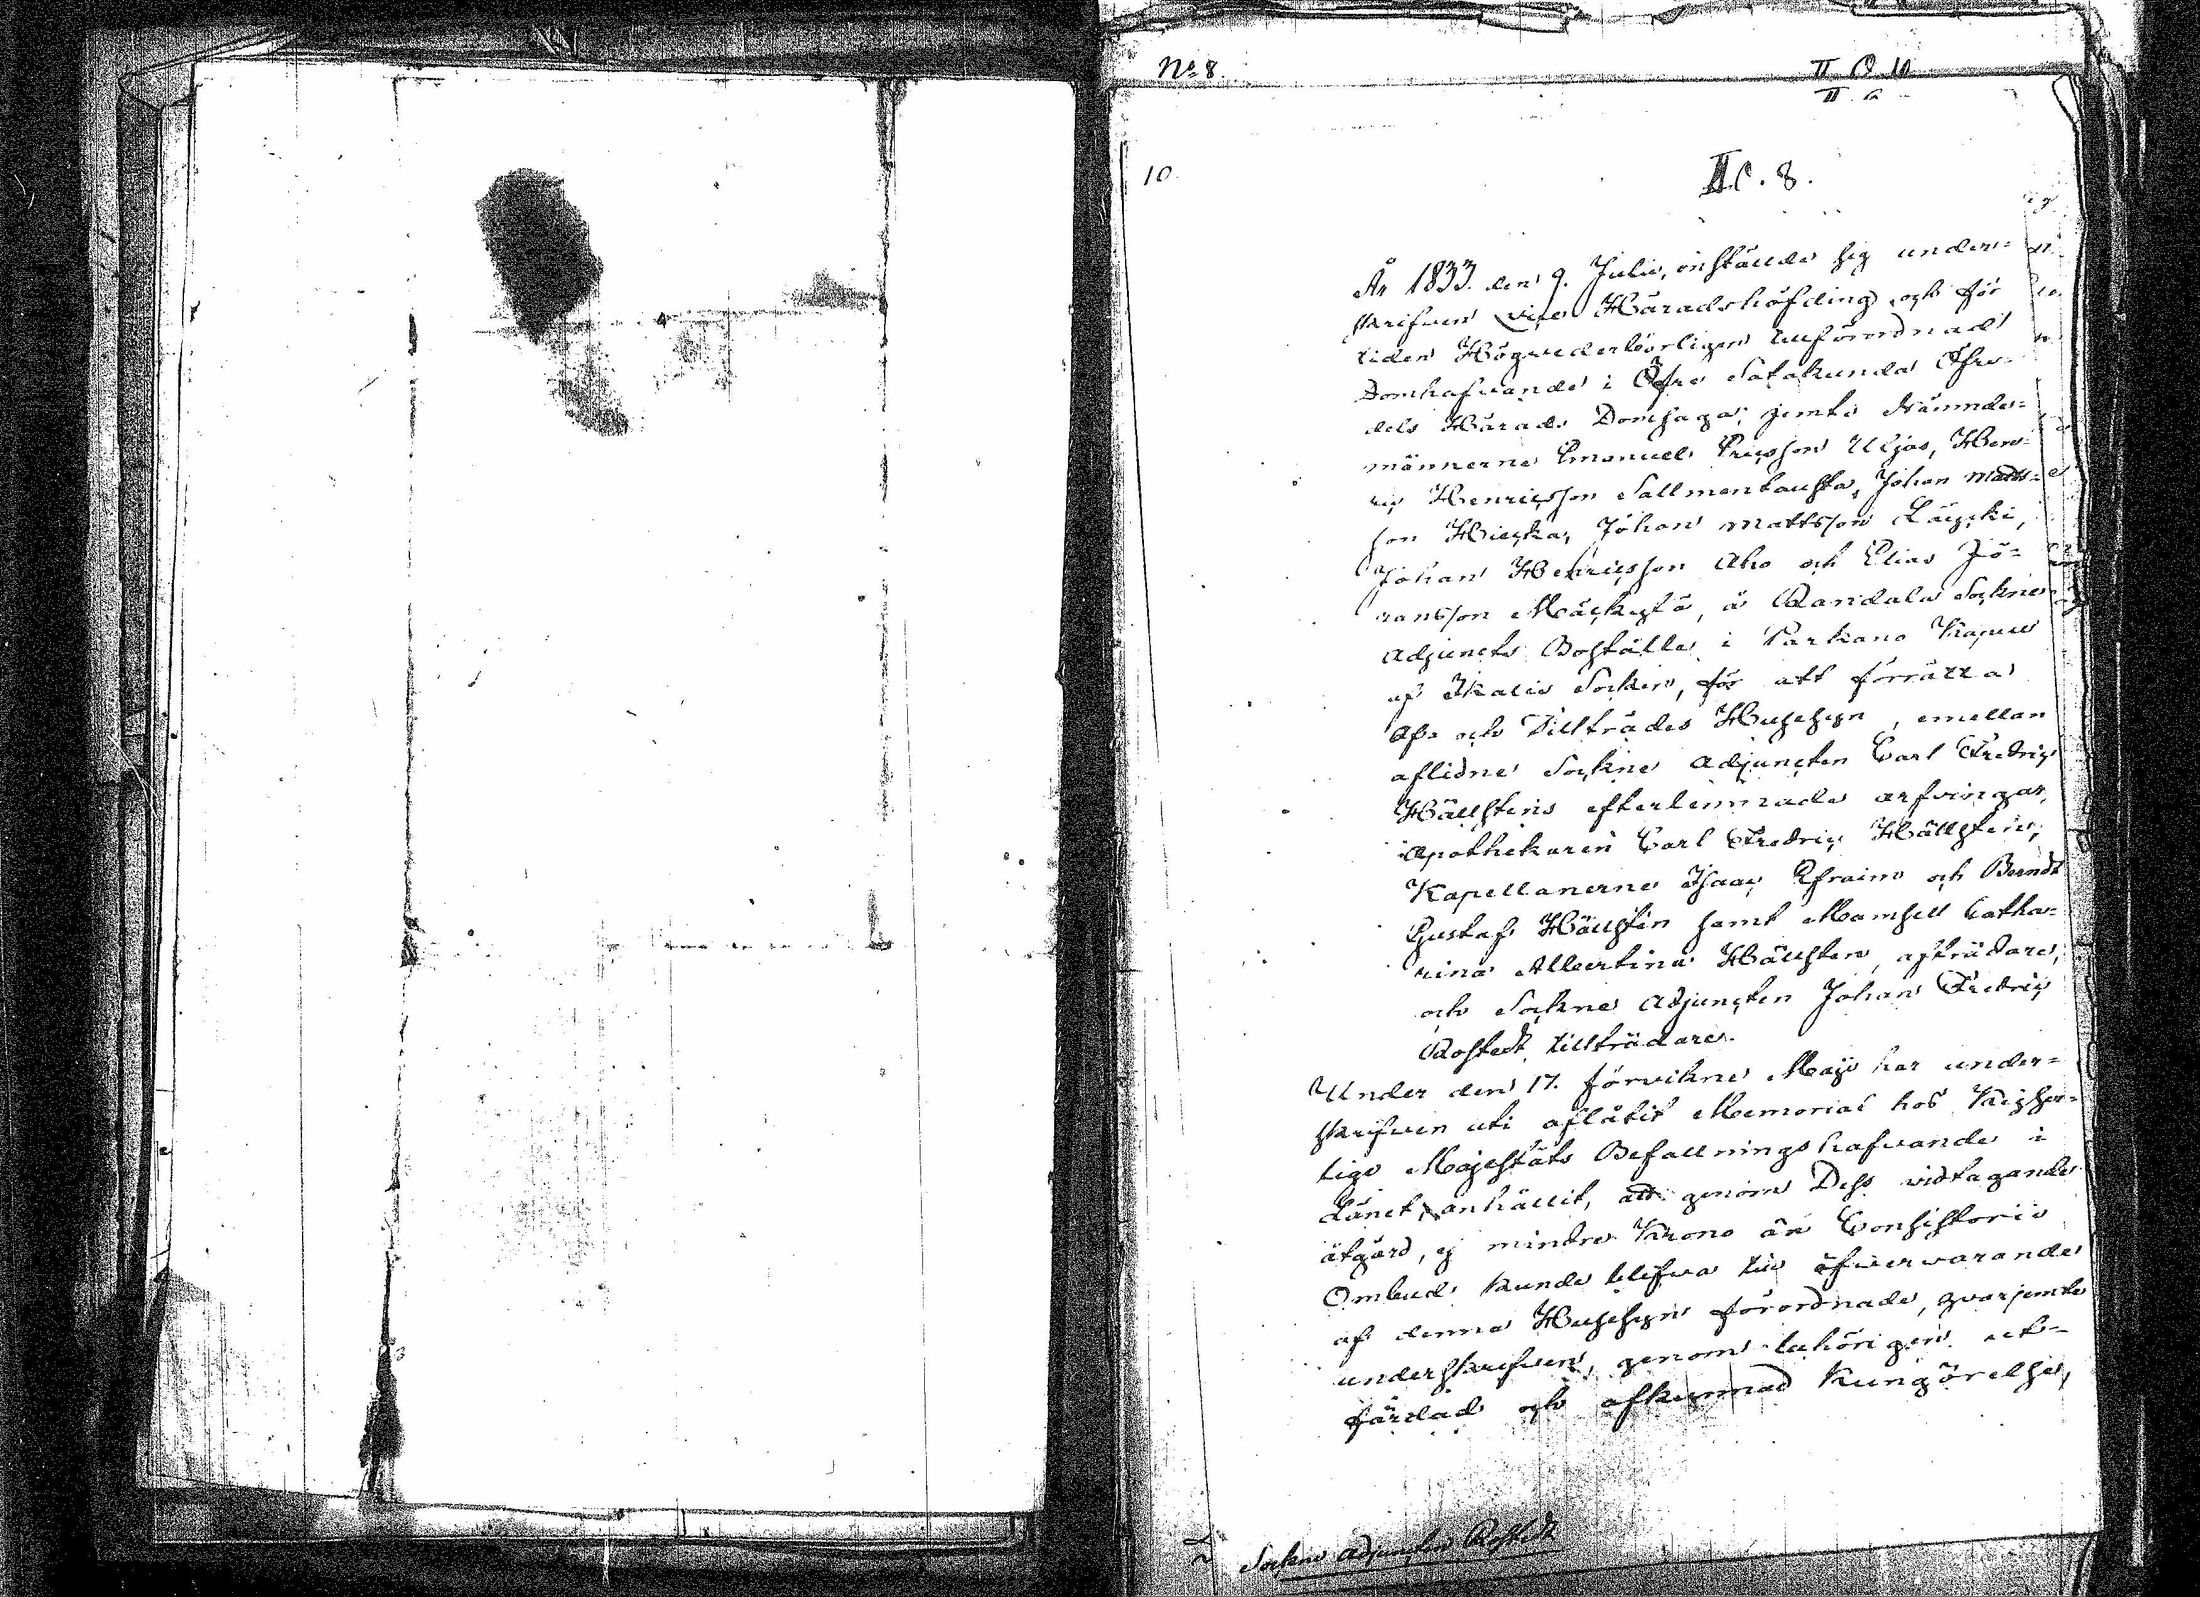 No 8.
II O 10
II a
10.
II C. 8.
År 1833. den 9. Julii, inställde sig under=
skrifven vice Häradshöfding och för
tiden Högvederbörligen utförordnad
Domhafvande i Öfre Satakunda Öfre
dels Härads Domsaga; jemte Nämnde=
männerne Emanuel Ericsson Uljas, Hen=
ric Henricsson Sallmentausta, Johan Matts=
son Hiecka, Johan Mattsson Läyski,
Johan Henricsson Aho och Elias Jö=
ransson Mäckylä, å Randala Sockne
Adjuncts Boställe i Parkano Kapell
af Ikalis Socken, för att förrätta
Af= och Tillträdes Husesyn, emellan
aflidne Sockne Adjuncten Carl Fredric
Hällstens efterlemnade arfvingar,
Apothekaren Carl Fredric Hällstén,
Kapellanerne Isaac Efraim och Berndt
Gustaf Hällstén samt Mamsell Catha=
rina Albertina Hällstén, afträdare,
och Sockne Adjuncten Johan Fredric
Rostedt tillträdare.
Under den 17. förvikne Maji har under=
skrifven uti aflåtit Memorial hos Kejser=
lige Majestäts Befallningshafvande i
Länet anhållit, att genom Dess vidtagande
åtgärd, ej mindre Krono än Consistorii
Ombud kunde blifva till öfvervarande
af denna Husesyn förordnade, hvarjemte
underskrifven, genom behörigen ut=
färdad och afkunnad Kungörelse,
Sockne Adjuncten Rostedt